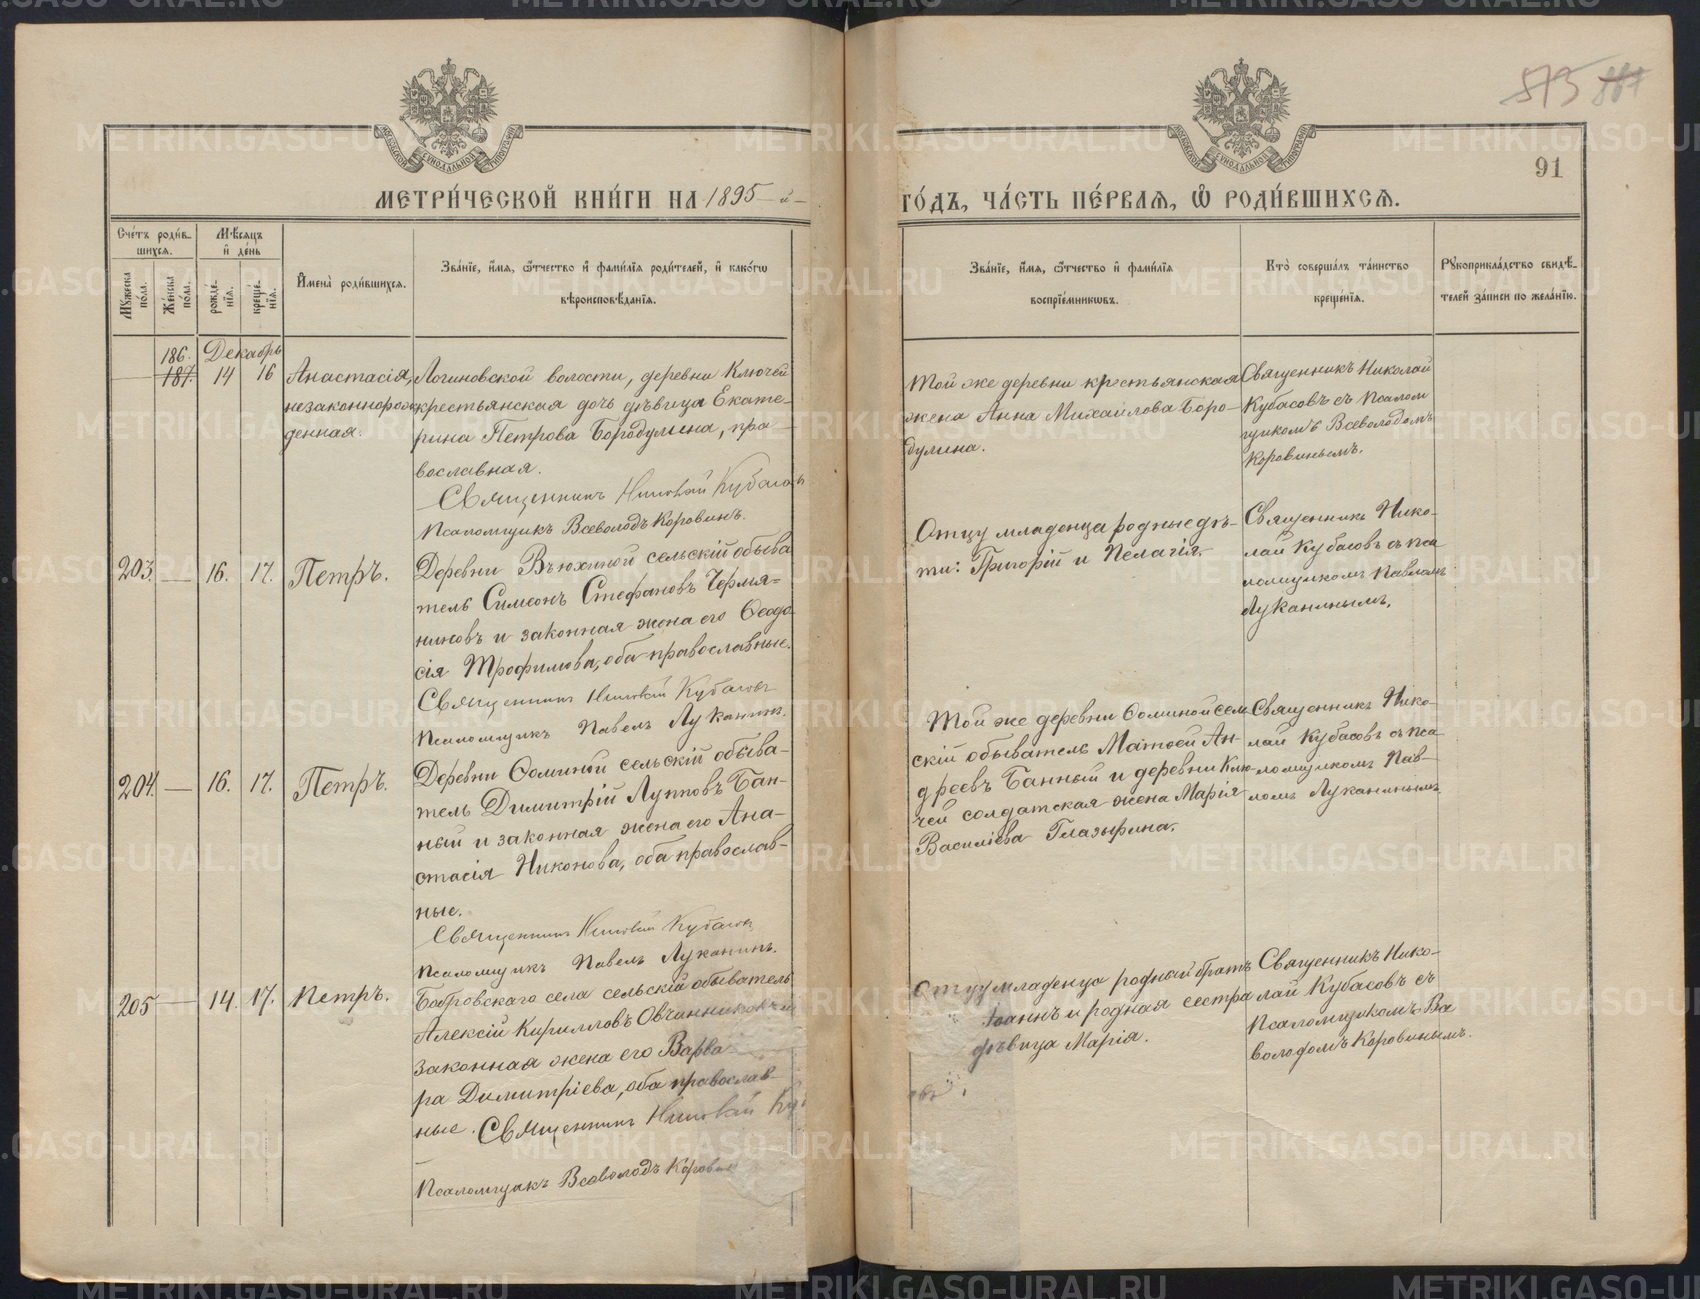 873 887
91
МЕТРИ́ЧЕСКОЙ КНИ́ГИ НА 1895-й
ГО́ДЪ, ЧА́СТЬ ПЕ́РВАѦ, Ѡ РОДИ́ВШИХСѦ.
Сче́тъ роди́в-
шихсѧ.
Мꙋжеска по́ла.
Же́нска по́ла.
Мѣ́сѧцъ
и҆ де́нь
рожде́-
нїѧ.
креще́-
нїѧ.
И҆мена̀ роди́вшихсѧ.
Зва́нїе, и҆́мѧ, ѻ҆́тчество и҆ фами́лїѧ роди́телей, и҆ како́гѡ
вѣроисповѣ́данїѧ.
Зва́нїе, и҆́мѧ, ѻ҆́тчество и҆ фами́лїѧ
воспрїе́мникѡвъ.
Кто̀ соверша́лъ та́инство
креще́нїѧ.
Рꙋкоприкла́дство свидѣ́-
телей за́писи по жела́нїю.
186. Декабрь
187. 14 16
Анастасія,
незаконнорож
денная.
Логиновской волости, деревни Ключей
крестьянская дочь дѣвица Екате-
рина Петрова Бородулина, пра-
вославная.
Священникъ Николай Кубасовъ
Псаломщикъ Всеволодъ Коровинъ.
Той же деревни крестьянская
жена Анна Михаилова Боро-
дулина.
Священникъ Николай
Кубасовъ съ Псалом
щикомъ Всеволодомъ
Коровинымъ.
203. — 16. 17. Петръ.
Деревни Вьюхиной сельскій обыва
тель Симеонъ Стефановъ Чермя-
ниновъ и законная жена его Ѳеодо
сія Трофимова, оба православные.
Священникъ Николай Кубасовъ
Псаломщикъ Павелъ Луканинъ.
Отцу младенца родные дѣ-
ти: Григорій и Пелагія.
Священникъ Нико-
лай Кубасовъ съ пса
ломщикомъ Павломъ
Луканинымъ.
204. — 16. 17. Петръ.
Деревни Ѳоминой сельскій обыва-
тель Димитрій Лупповъ Бан-
ный и законная жена его Ана-
стасія Никонова, оба православ-
ные.
Священникъ Николай Кубасовъ
Псаломщикъ Павелъ Луканинъ.
Той же деревни Ѳоминой сель
скій обыватель Матѳей Ан-
дреевъ Банный и деревни Клю-
чей солдатская жена Марія
Василіева Глазырина.
Священникъ Нико-
лай Кубасовъ съ пса
ломщикомъ Пав-
ломъ Луканинымъ
205 — 14. 17. Петръ.
Бобровскаго села сельскій обыватель
Алексій Кирилловъ Овчинниковъ и
законная жена его Варва
ра Димитріева, оба православ-
ные. Священникъ Николай Куб
Псаломщикъ Всеволодъ Коровин
Отцу младенца родной братъ
Іоаннъ и родная сестра
дѣвица Марія.
Священникъ Нико-
лай Кубасовъ съ
Псаломщикомъ Все
володомъ Коровинымъ.
METRIKI.GASO-URAL.RU